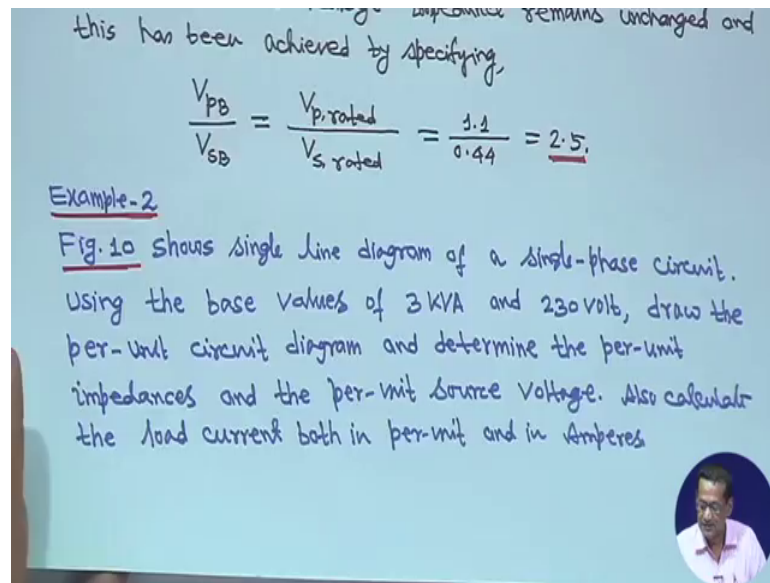 remains unchanged and
this has been achieved by specifying,
V_PB / V_SB = V_p,rated / V_s,rated = 1.1 / 0.44 = 2.5.
Example-2
Fig. 10 shows single line diagram of a single-phase circuit.
Using the base values of 3 KVA and 230 volt, draw the
per-unit circuit diagram and determine the per-unit
impedances and the per-unit source voltage. Also calculate
the load current both in per-unit and in Amperes